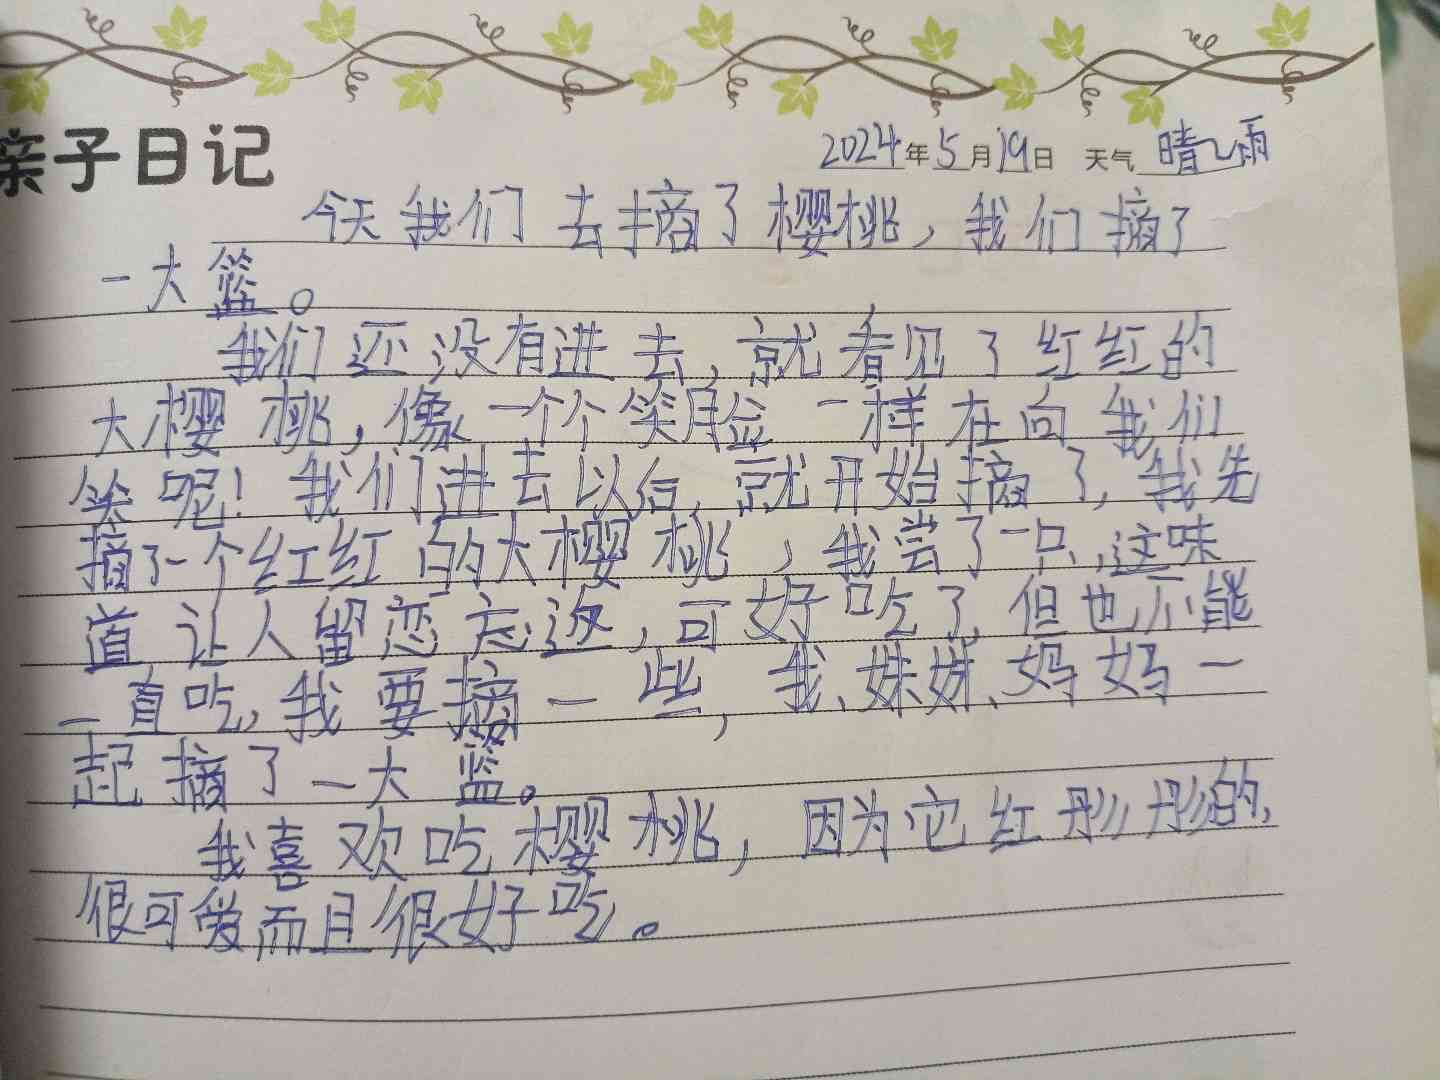 亲子日记
2024年5月19日 天气 晴乀雨
今天我们去摘了樱桃，我们摘了
一大篮。
我们还没有进去，就看见了红红的
大樱桃，像一个个笑脸一样在向我们
笑呢！我们进去以后，就开始摘了，我先
摘了一个红红的大樱桃，我尝了一只，这味
道让人留恋忘返，可好吃了，但也不能
一直吃，我要摘一些，我、妹妹、妈妈一
起摘了一大篮。
我喜欢吃樱桃，因为它红彤彤的，
很可爱而且很好吃。